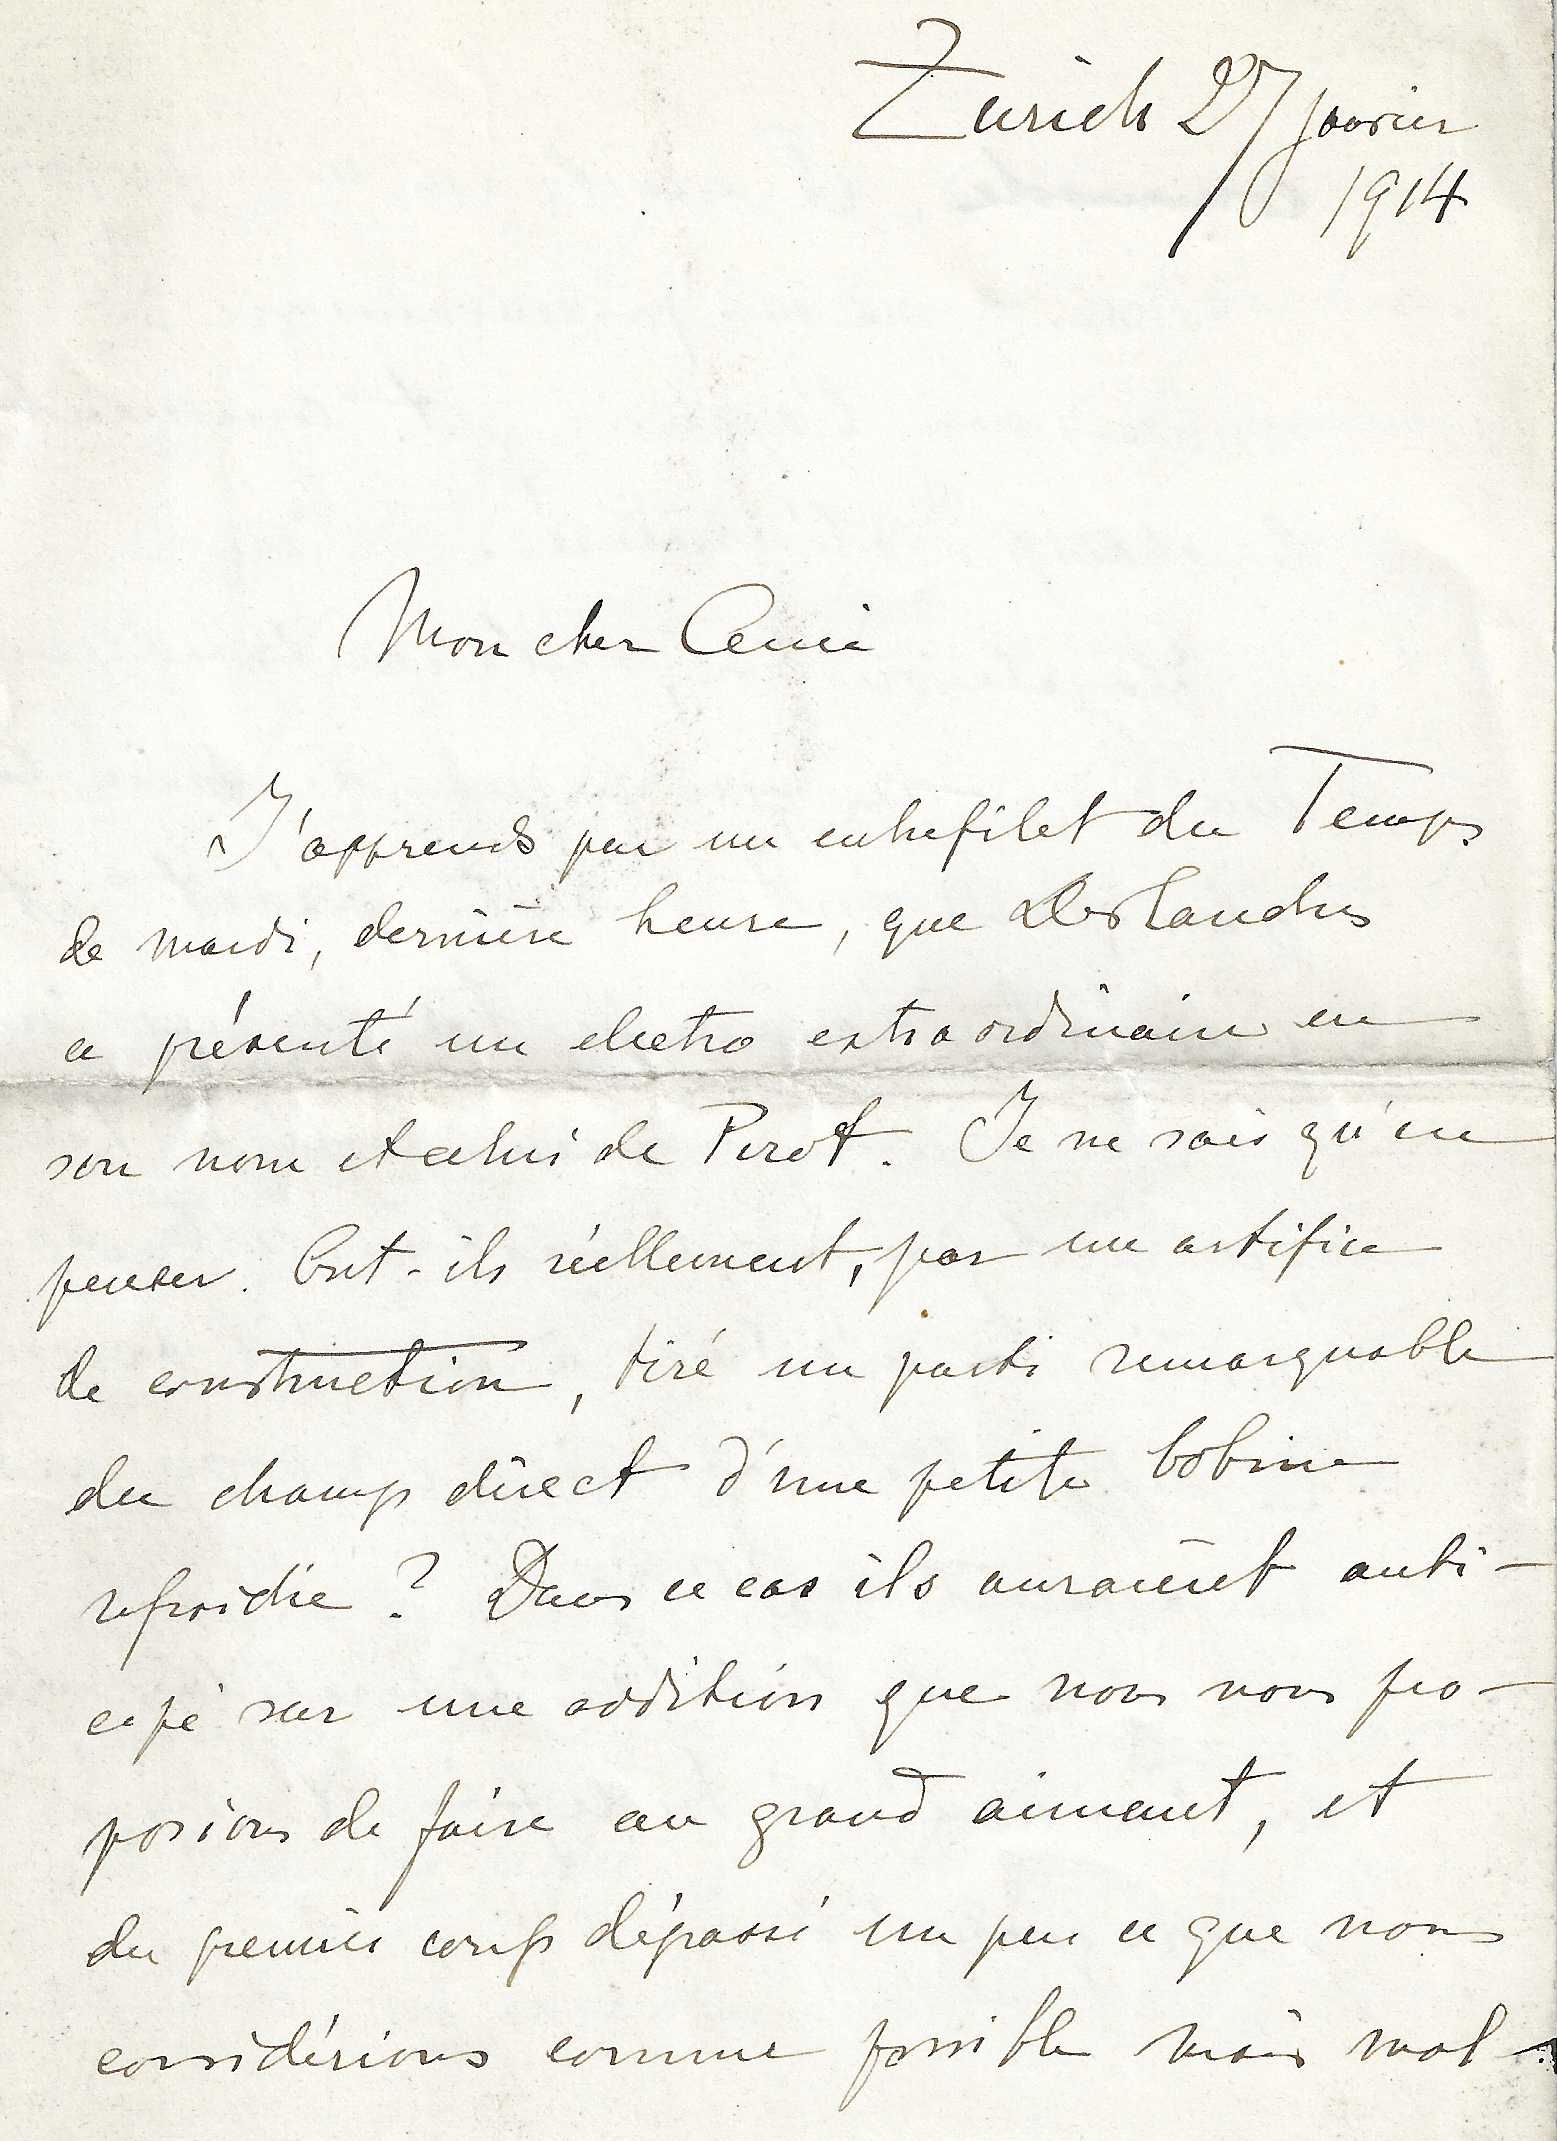 Zurich 27 janvier
1914
Mon cher Ami
J'apprends par un entrefilet du Temps
de mardi, dernière heure, que Deslandres
a présenté un electro extraordinaire en
son nom et celui de Perot. Je ne sais qu'en
penser. Ont-ils réellement, par un artifice
de construction, tiré un parti remarquable
du champ direct d'une petite bobine
refroidie ? Dans ce cas ils auraient anti-
cipé sur une addition que nous nous pro-
posions de faire au grand aimant, et
du premier coup dépassé un peu ce que nous
considérions comme possible mais mal